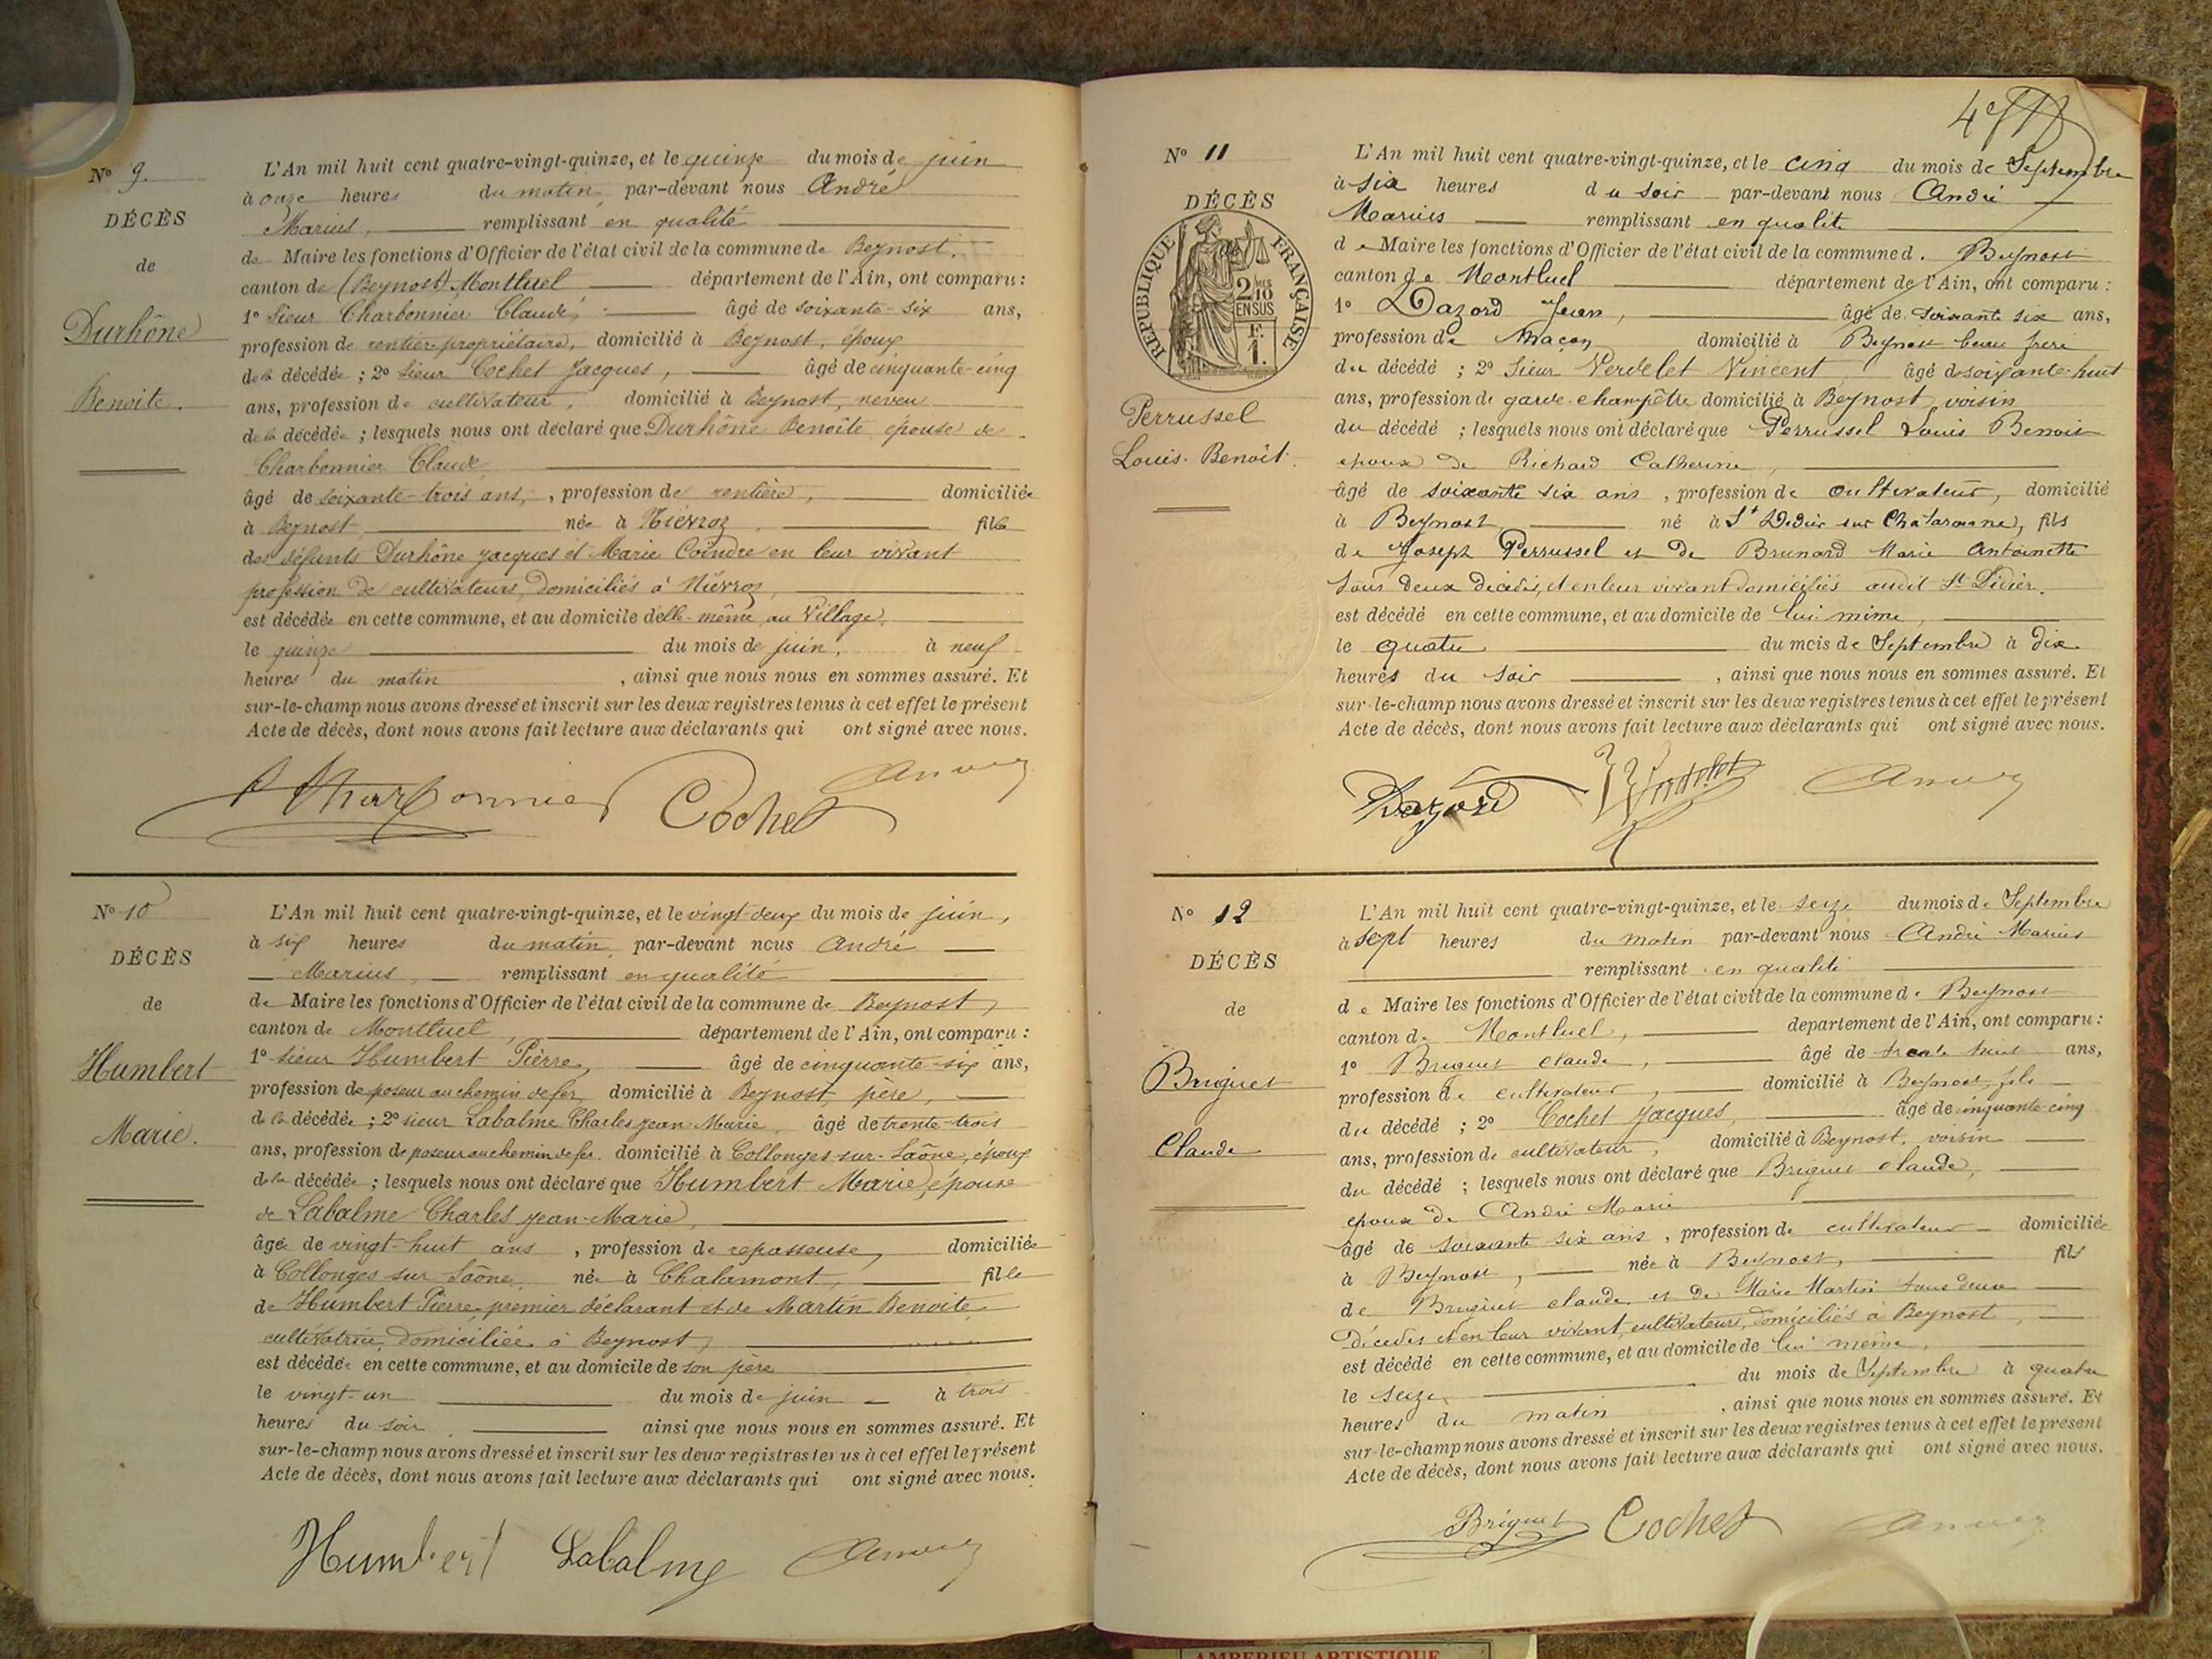 Nº 9.
DÉCÈS
de
Durhône
Benoite.
L'An mil huit cent quatre-vingt-quinze, et le quinze du mois de juin
à onze heures du matin, par-devant nous André
Marius, remplissant en qualité
de Maire les fonctions d'Officier de l'état civil de la commune de Beynost,
canton de (Beynost) Montluel département de l'Ain, ont comparu :
1º Sieur Charbonnier Claude, âgé de soixante-six ans,
profession de rentier propriétaire, domicilié à Beynost, époux
de la décédée ; 2º Sieur Cochet Jacques, âgé de cinquante-cinq
ans, profession de cultivateur, domicilié à Beynost, neveu
de la décédée ; lesquels nous ont déclaré que Durhône Benoîte épouse de
Charbonnier Claude,
âgé de soixante-trois ans, , profession de rentière, domiciliée
à Beynost née à Niévroz, fille
des défunts Durhône Jacques et Marie Coindre en leur vivant
profession de cultivateurs, domiciliés à Niévroz,
est décédée en cette commune, et au domicile d'elle-même au Village,
le quinze du mois de juin, à neuf
heures du matin , ainsi que nous nous en sommes assuré. Et
sur-le-champ nous avons dressé et inscrit sur les deux registres tenus à cet effet le présent
Acte de décès, dont nous avons fait lecture aux déclarants qui ont signé avec nous.
Charbonnier Cochet
Nº 10
DÉCÈS
de
Humbert
Marie.
L'An mil huit cent quatre-vingt-quinze, et le vingt-deux du mois de juin,
à six heures du matin, par-devant nous André
Marius, remplissant en qualité
de Maire les fonctions d'Officier de l'état civil de la commune de Beynost,
canton de Montluel, département de l'Ain, ont comparu :
1º sieur Humbert Pierre, âgé de cinquante-six ans,
profession de poseur au chemin de fer, domicilié à Beynost, père,
de la décédée ; 2º sieur Labalme Charles Jean-Marie, âgé de trente-trois
ans, profession de poseur au chemin de fer. domicilié à Collonges-sur-Saône, époux
de la décédée ; lesquels nous ont déclaré que Humbert Marie, épouse
de Labalme Charles Jean-Marie,
âgée de vingt-huit ans , profession de repasseuse, domiciliée
à Collonges sur Saône, née à Chalamont, fille
de Humbert Pierre, premier déclarant et de Martin Benoite
cultivatrice, domiciliée à Beynost,
est décédée en cette commune, et au domicile de son père
le vingt-un du mois de juin à trois
heures du soir, ainsi que nous nous en sommes assuré. Et
sur-le-champ nous avons dressé et inscrit sur les deux registres tenus à cet effet le présent
Acte de décès, dont nous avons fait lecture aux déclarants qui ont signé avec nous.
Humbert Labalme
4e
Nº 11
DÉCÈS
RÉPUBLIQUE FRANÇAISE
2 MES
10
EN SUS
F.
1.
Perrussel
Louis-Benoît.
L'An mil huit cent quatre-vingt-quinze, et le cinq du mois de Septembre
à six heures du soir par-devant nous André
Marius remplissant en qualité
de Maire les fonctions d'Officier de l'état civil de la commune d. Beynost
canton de Montluel département de l'Ain, ont comparu :
1º Dazord Jean, âgé de soixante six ans,
profession de Maçon domicilié à Beynost beau frère
du décédé ; 2º Sieur Verdelet Vincent âgé de soixante-huit
ans, profession de garde-champêtre domicilié à Beynost, voisin
du décédé ; lesquels nous ont déclaré que Perrussel Louis Benoit
epoux de Richard Catherine,
âgé de soixante six ans , profession de Cultivateur, domicilié
à Beynost, né à St Didier sur Chalaronne, fils
de Joseph Perrussel et de Brunard Marie Antoinette
tous deux décédés, et en leur vivant domiciliés audit St Didier.
est décédé en cette commune, et au domicile de lui même,
le quatre du mois de Septembre à dix
heures du soir , ainsi que nous nous en sommes assuré. Et
sur-le-champ nous avons dressé et inscrit sur les deux registres tenus à cet effet le présent
Acte de décès, dont nous avons fait lecture aux déclarants qui ont signé avec nous.
Dazord Verdelet
Nº 12
DÉCÈS
de
Briguet
Claude
L'An mil huit cent quatre-vingt-quinze, et le seize du mois de Septembre
à sept heures du matin par-devant nous André Marius
remplissant en qualité
de Maire les fonctions d'Officier de l'état civil de la commune de Beynost
canton de Montluel, département de l'Ain, ont comparu :
1º Briguet Claude, âgé de trente huit ans,
profession de cultivateur, domicilié à Beynost, fils
du décédé ; 2º Cochet Jacques, âgé de cinquante-cinq
ans, profession de cultivateur, domicilié à Beynost, voisin
du décédé ; lesquels nous ont déclaré que Briguet Claude,
epoux de André Marie
âgé de soixante six ans , profession de cultivateur domiciliée
à Beynost, née à Beynost, fils
de Briguet Claude et de Marie Martin tous deux
Décédés et en leur vivant, cultivateurs, domiciliés à Beynost,
est décédé en cette commune, et au domicile de lui même,
le seize, du mois de Septembre à quatre
heures du matin , ainsi que nous nous en sommes assuré. Et
sur-le-champ nous avons dressé et inscrit sur les deux registres tenus à cet effet le présent
Acte de décès, dont nous avons fait lecture aux déclarants qui ont signé avec nous.
Briguet Cochet
AMBERIEU ARTISTIQUE